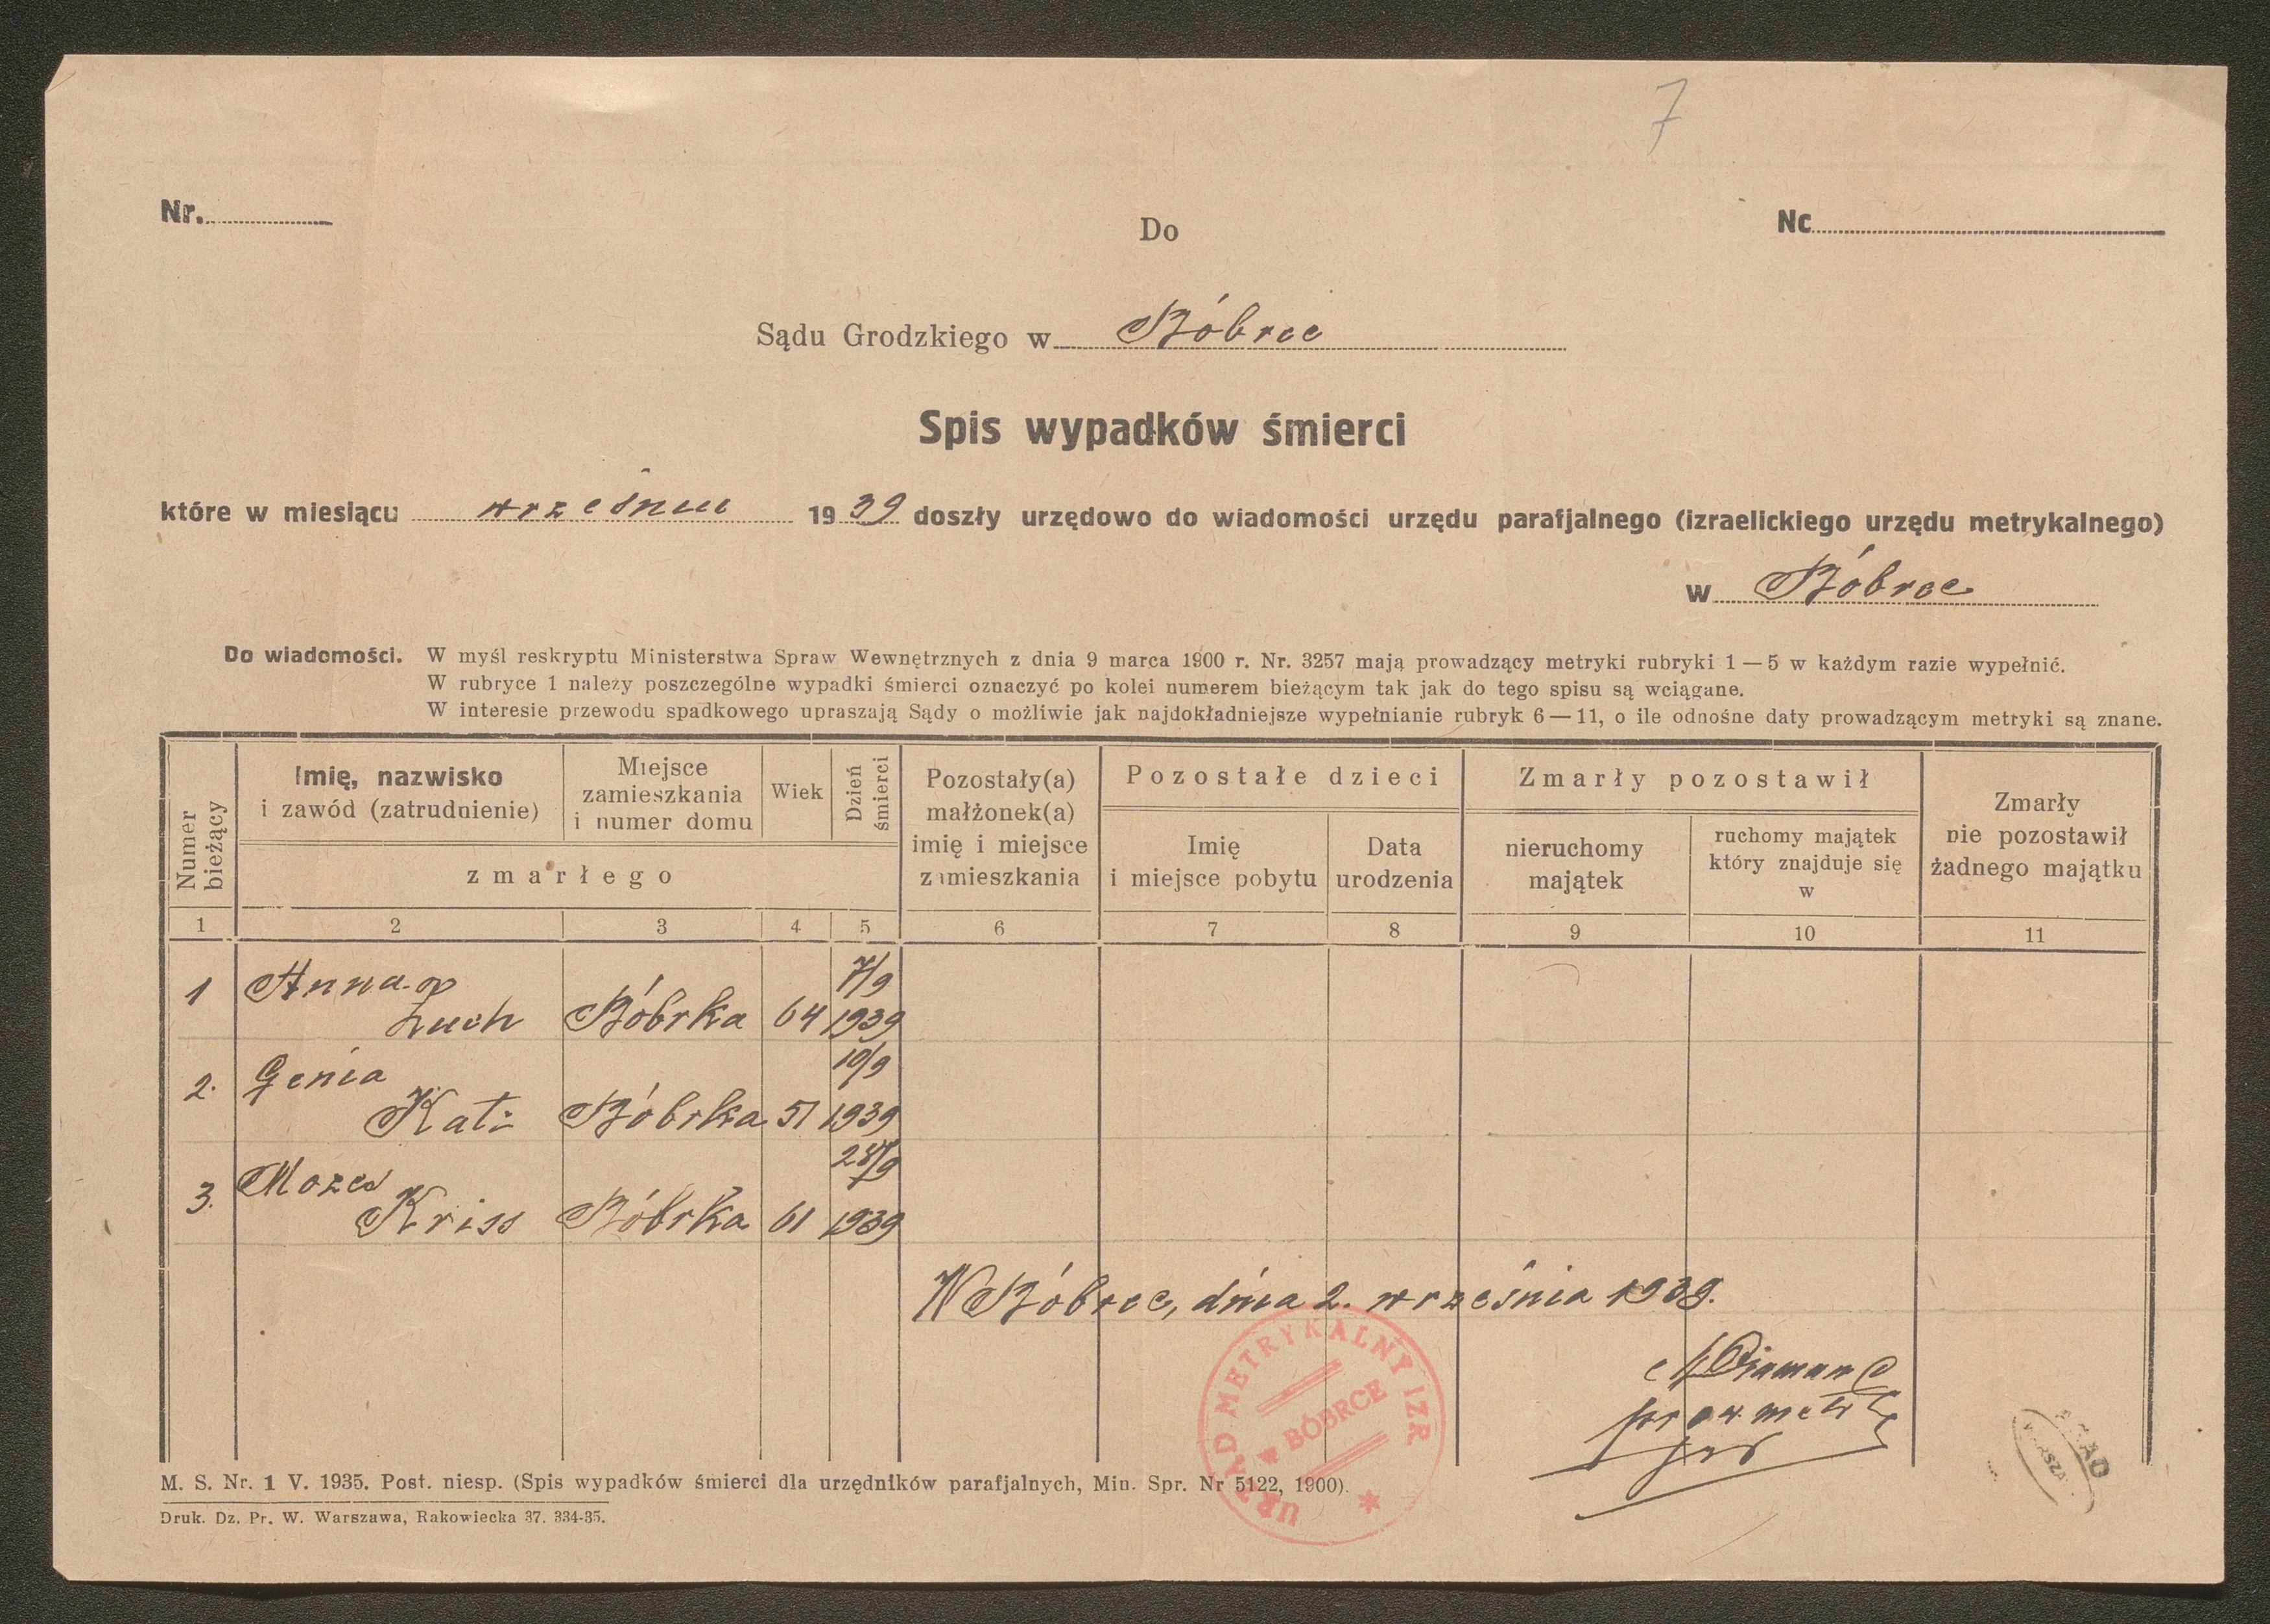 7
Nr.
Nc
Do
Sądu Grodzkiego w Bóbrce
Spis wypadków śmierci
które w miesiącu wrześniu 1939 doszły urzędowo do wiadomości urzędu parafjalnego (izraelickiego urzędu metrykalnego)
w Bóbrce
Do wiadomości. W myśl reskryptu Ministerstwa Spraw Wewnętrznych z dnia 9 marca 1900 r. Nr. 3257 mają prowadzący metryki rubryki 1—5 w każdym razie wypełnić.
W rubryce 1 należy poszczególne wypadki śmierci oznaczyć po kolei numerem bieżącym tak jak do tego spisu są wciągane.
W interesie przewodu spadkowego upraszają Sądy o możliwie jak najdokładniejsze wypełnianie rubryk 6—11, o ile odnośne daty prowadzącym metryki są znane.
Numer bieżący
Imię, nazwisko
i zawód (zatrudnienie)
Miejsce
zamieszkania
i numer domu
Wiek
Dzień śmierci
zmarłego
Pozostały(a)
małżonek(a)
imię i miejsce
zamieszkania
Pozostałe dzieci
Imię
i miejsce pobytu
Data
urodzenia
Zmarły pozostawił
nieruchomy
majątek
ruchomy majątek
który znajduje się
w
Zmarły
nie pozostawił
żadnego majątku
1 2 3 4 5 6 7 8 9 10 11
1 Anna 7/9
Zuch Bóbrka 64 1939
2. Genia 10/9
Katz Bóbrka 51 1939
3. Mozes 28/9
Kriss Bóbrka 61 1939
W Bóbrce, dnia 2. września 1939.
Diamand
prow. metr
URZĄD METRYKALNY IZR
w BÓBRCE
M. S. Nr. 1 V. 1935. Post. niesp. (Spis wypadków śmierci dla urzędników parafjalnych, Min. Spr. Nr 5122, 1900).
Druk. Dz. Pr. W. Warszawa, Rakowiecka 37. 334-35.